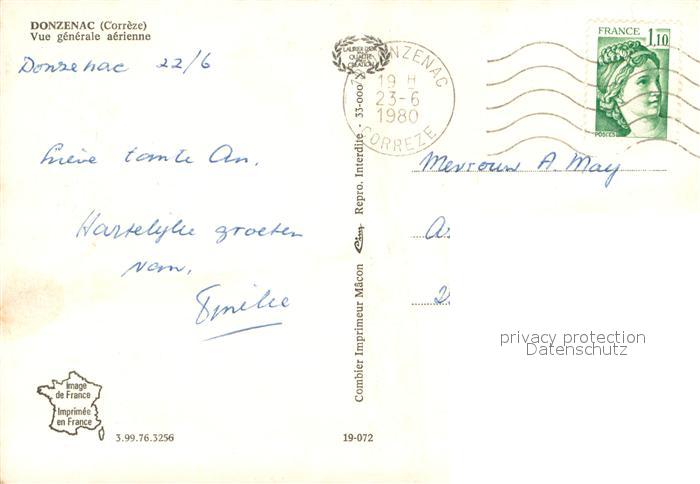 DONZENAC (Corrèze)
Vue générale aérienne
Donzenac 22/6
Lieve tante An.
Hartelijke groeten
van.
Emilie
Image
de France
Imprimée
en France
3.99.76.3256
19-072
Combier Imprimeur Mâcon Cim Repro. Interdite - 33-000
LAURIER D'OR
QUALITÉ
CRÉATION
DONZENAC
19 H
23-6
1980
CORREZE
FRANCE 1,10
POSTES
Mevrouw A. May
A
2
privacy protection
Datenschutz